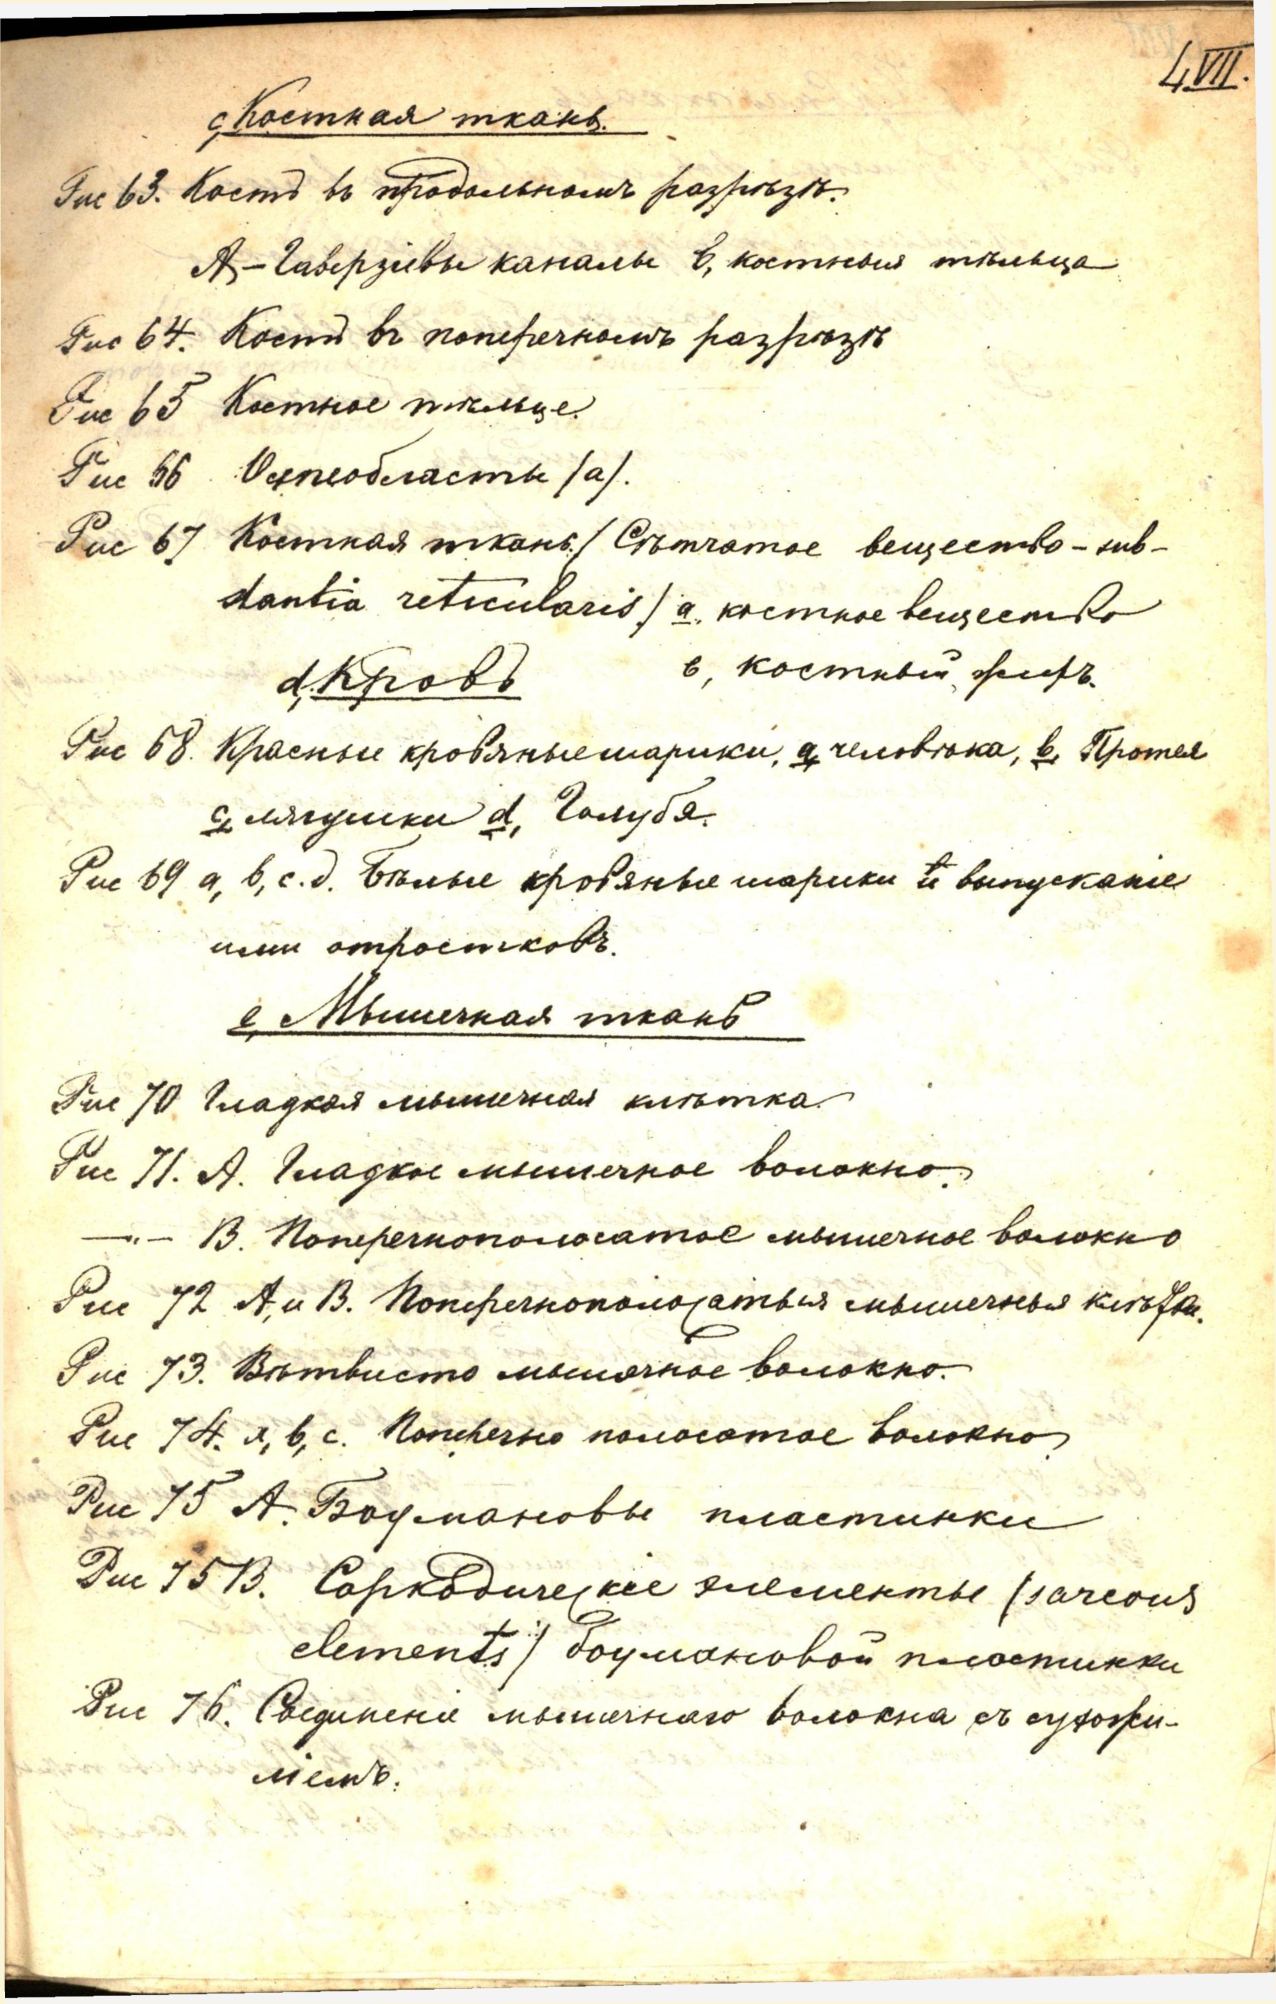 LVII.
c, Костная ткань.
Рис 63. Кость въ продольномъ разрѣзѣ.
А,–Гаверзіевы каналы в, костныя тѣльца
Рис 64. Кость въ поперечномъ разрѣзѣ
Рис 65 Костное тѣльце.
Рис 66 Остеобласты /а/.
Рис 67 Костная ткань / Сѣтчатое вещество – sub-
stantia reticularis / а. костное вещество
в, костный жиръ.
d, Кровь
Рис 68. Красные кровяные шарики, а, человѣка, b, Протея
с, лягушки d, Голубя.
Рис 69 а, b, с. д. Бѣлые кровяные шарики и выпусканіе
ими отростковъ.
е, Мышечная ткань
Рис 70 Гладкая мышечная клѣтка.
Рис 71. А. Гладкое мышечное волокно.
—„— В. Поперечнополосатое мышечное волокно
Рис 72 А, и В. Поперечнополосатыя мышечныя клѣтки.
Рис 73. Вѣтвисто мышечное волокно.
Рис 74. а, b, с. Поперечно полосатое волокно
Рис 75 А. Боумановы пластинки
Рис 75 В. Саркодическіе элементы (sarcous
elements) боумановой пластинки
Рис 76. Соединеніе мышечнаго волокна съ сухожи-
ліемъ.